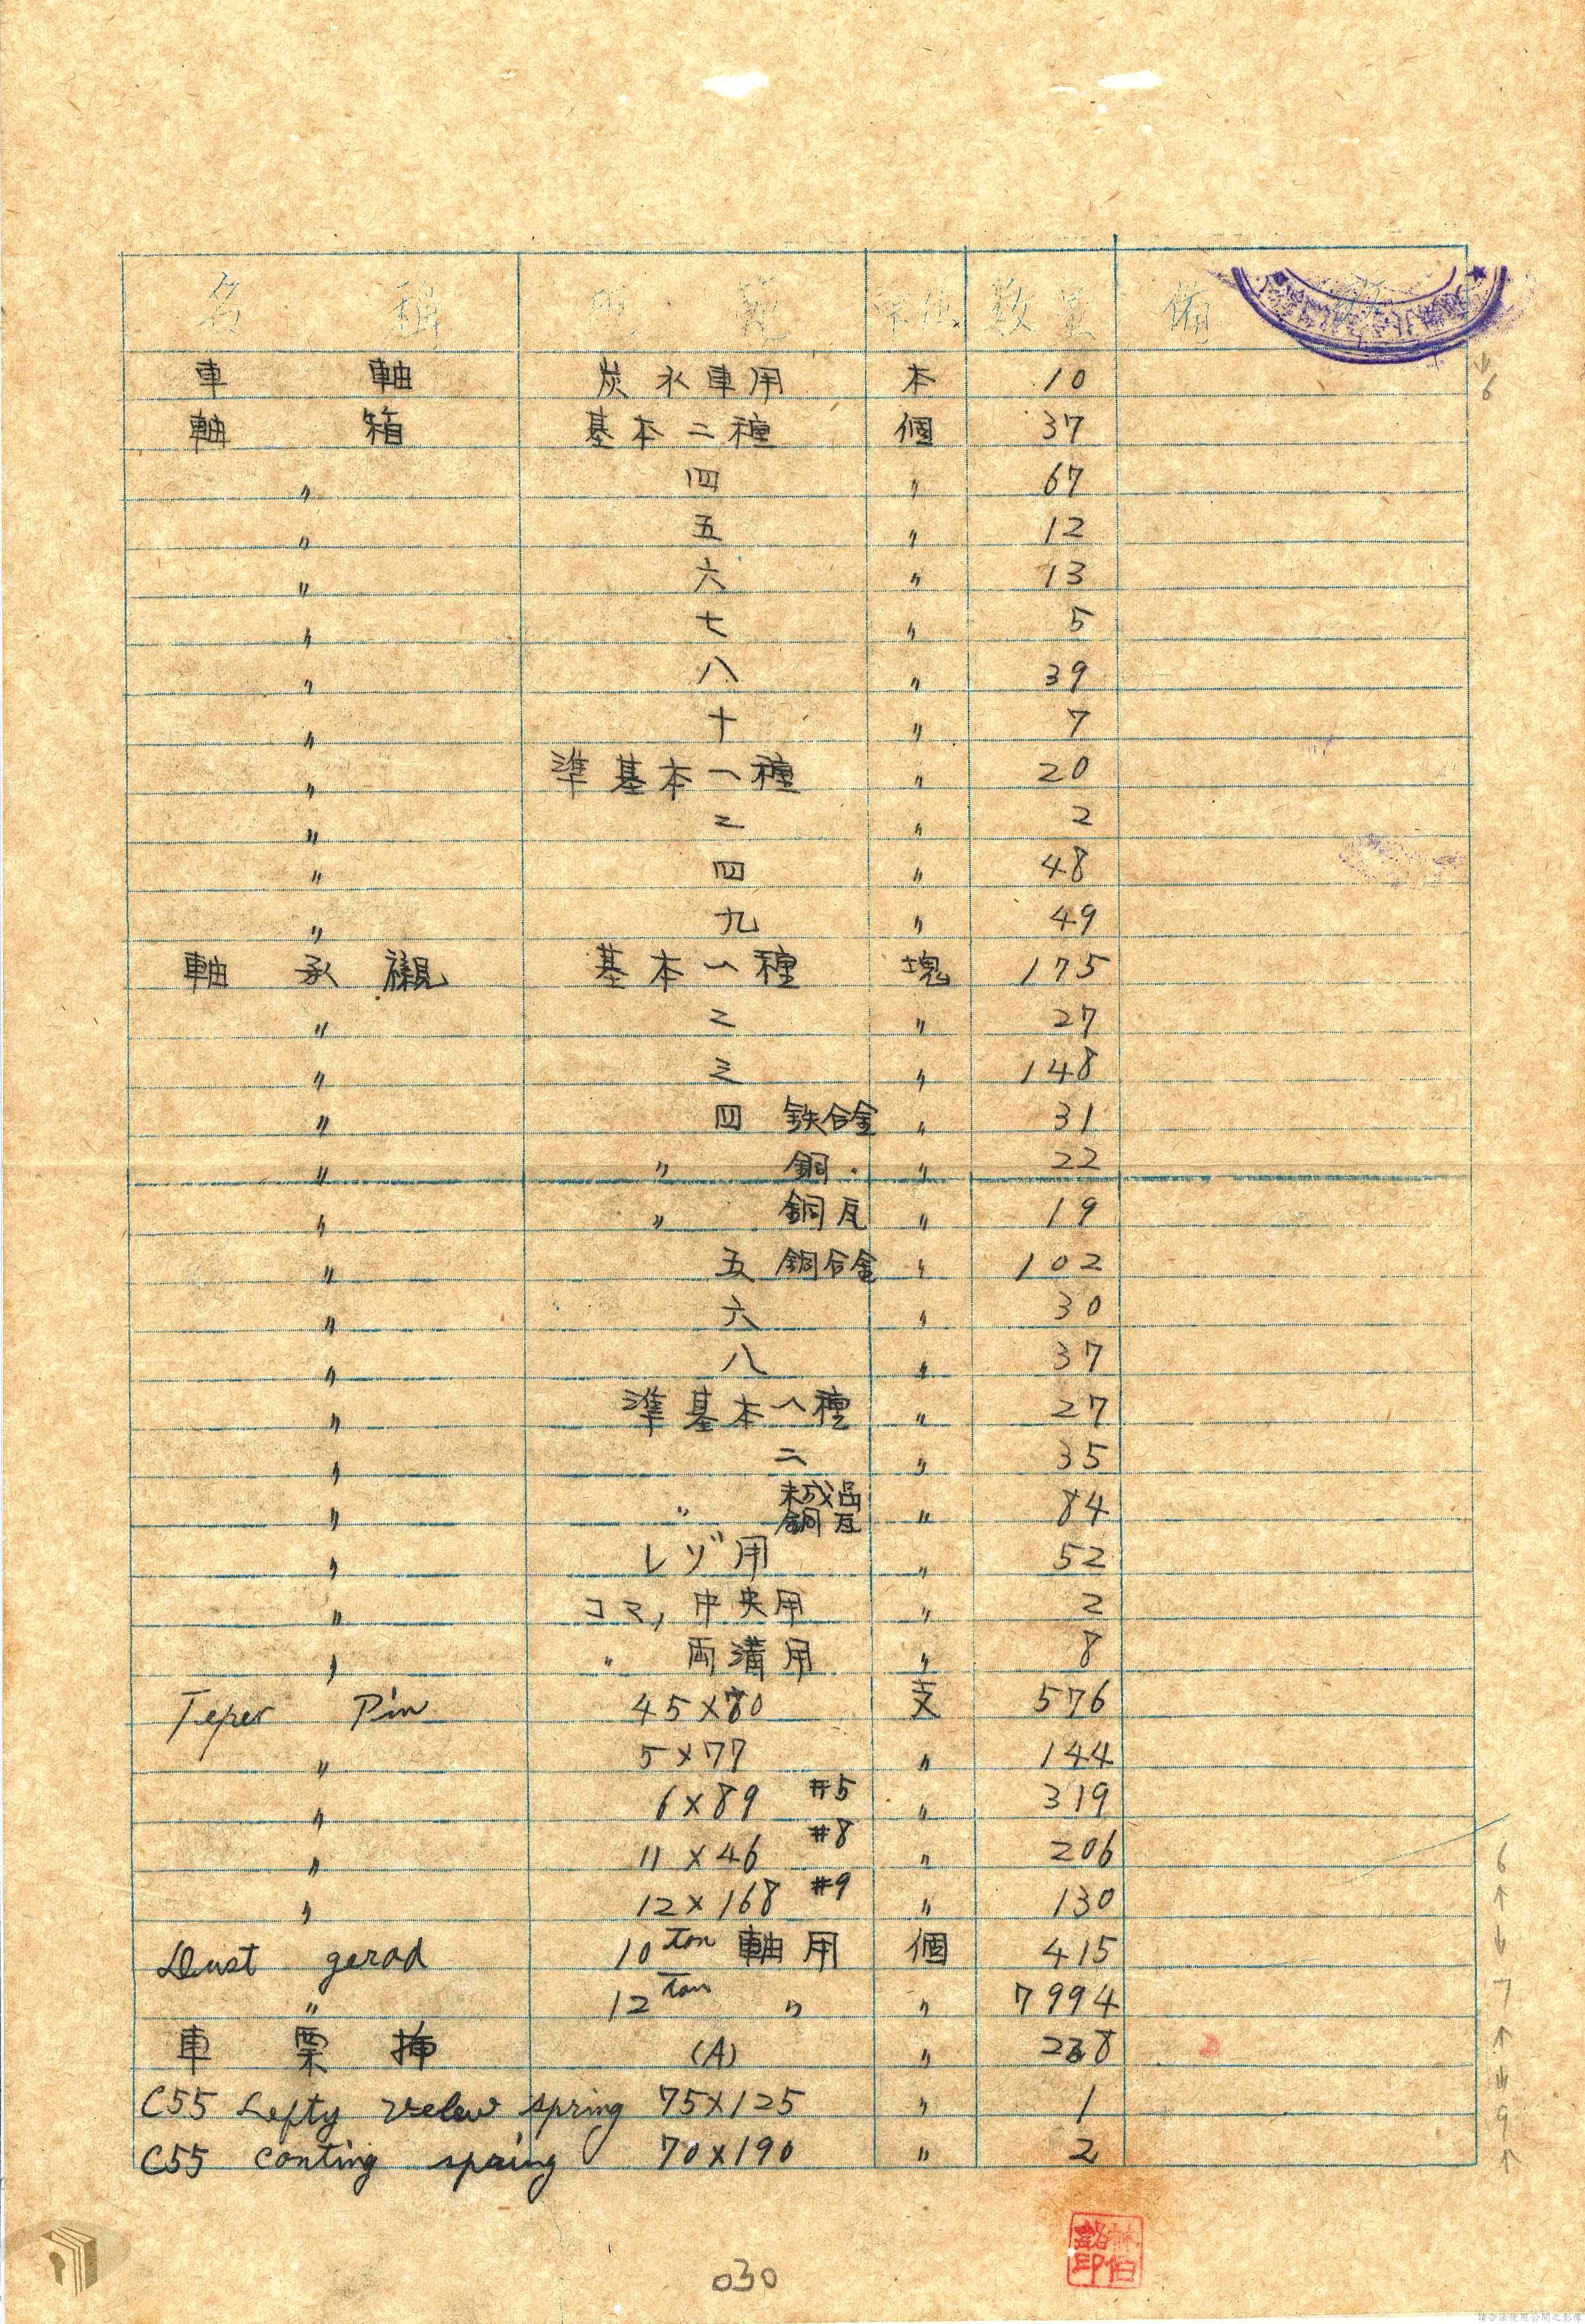 名稱 規範 單位 數量 備
車軸 炭水車用 本 10
軸箱 基本二種 個 37
〃 四 〃 67
〃 五 〃 12
〃 六 〃 13
〃 七 〃 5
〃 八 〃 39
〃 十 〃 7
〃 準基本一種 〃 20
〃 二 〃 2
〃 四 〃 48
〃 九 〃 49
軸承襯 基本一種 塊 175
〃 二 〃 27
〃 三 〃 148
〃 四 鉄合金 〃 31
〃 〃 銅 〃 22
〃 〃 銅瓦 〃 19
〃 五 銅合金 〃 102
〃 六 〃 30
〃 八 〃 37
〃 準基本一種 〃 27
〃 二 〃 35
〃 〃 未成品銅瓦 〃 84
〃 レゾ用 〃 52
〃 コマ, 中央用 〃 2
〃 〃 両溝用 〃 8
Teper Pin 45×80 支 576
〃 5×77 〃 144
〃 6×89 #5 〃 319
〃 11×46 #8 〃 206
〃 12×168 #9 〃 130
Dust gerad 10 ton 軸用 個 415
〃 12 ton 〃 〃 7994
車票挿 (A) 〃 238
C55 Lefty velew spring 75×125 〃 1
C55 conting spring 70×190 〃 2
030
6
6
↑
↓
7
↑
↓
9
↑